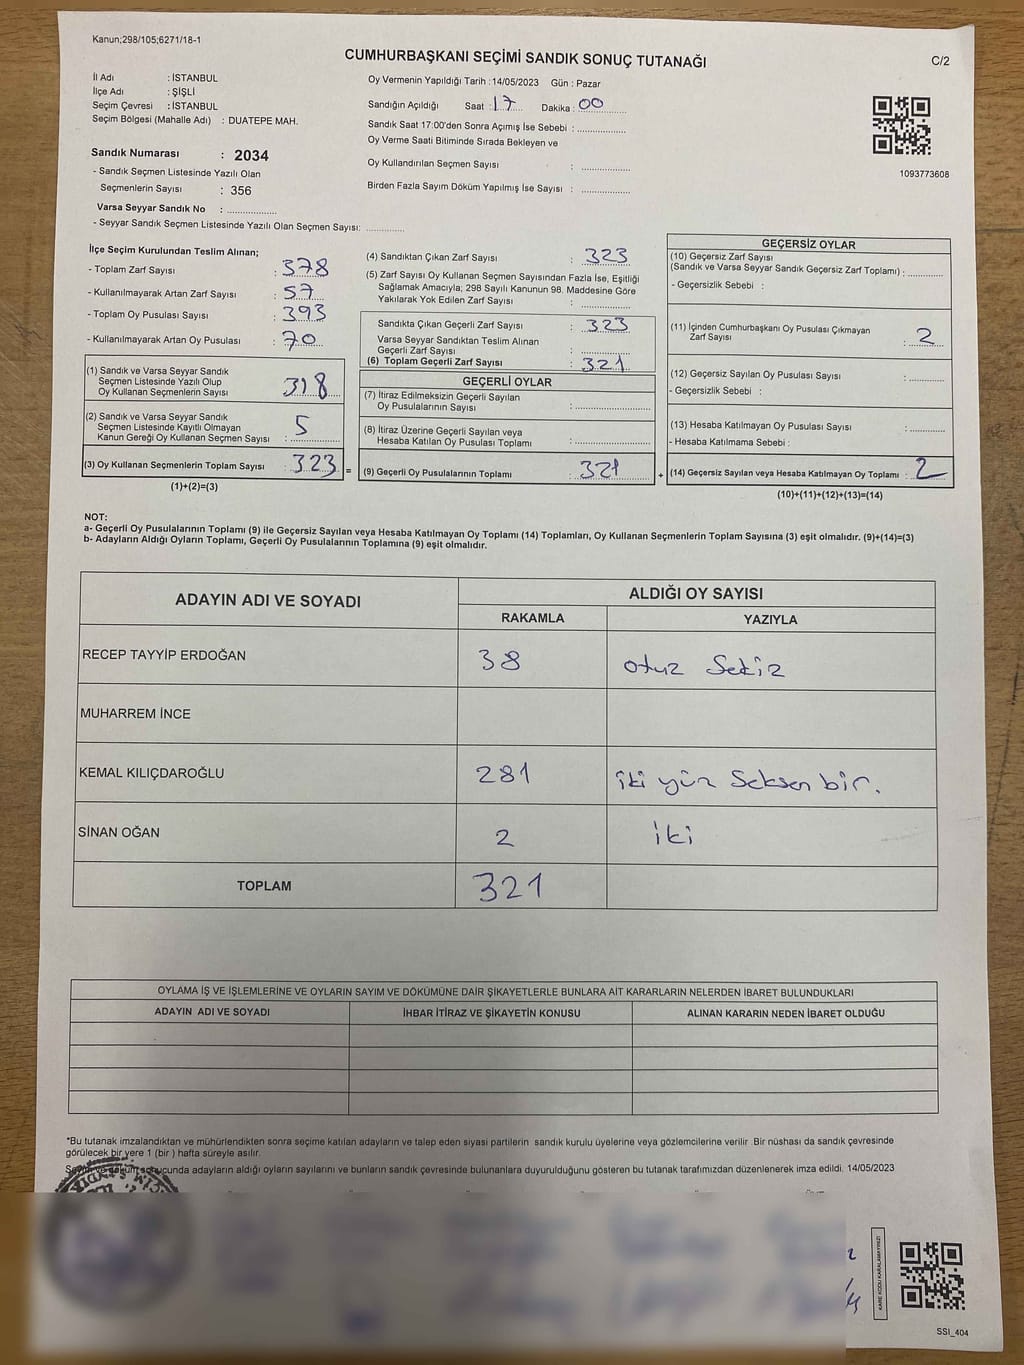 Kanun;298/105;6271/18-1
CUMHURBAŞKANI SEÇİMİ SANDIK SONUÇ TUTANAĞI
C/2
İl Adı : İSTANBUL
İlçe Adı : ŞİŞLİ
Seçim Çevresi : İSTANBUL
Seçim Bölgesi (Mahalle Adı) : DUATEPE MAH.
Sandık Numarası : 2034
- Sandık Seçmen Listesinde Yazılı Olan
Seçmenlerin Sayısı : 356
Varsa Seyyar Sandık No : ................
- Seyyar Sandık Seçmen Listesinde Yazılı Olan Seçmen Sayısı: ............
Oy Vermenin Yapıldığı Tarih : 14/05/2023 Gün : Pazar
Sandığın Açıldığı Saat : 17 Dakika : 00
Sandık Saat 17:00'den Sonra Açımış İse Sebebi : ................
Oy Verme Saati Bitiminde Sırada Bekleyen ve
Oy Kullandırılan Seçmen Sayısı : ................
Birden Fazla Sayım Döküm Yapılmış İse Sayısı : ................
1093773608
İlçe Seçim Kurulundan Teslim Alınan;
- Toplam Zarf Sayısı : 378
- Kullanılmayarak Artan Zarf Sayısı : 57
- Toplam Oy Pusulası Sayısı : 393
- Kullanılmayarak Artan Oy Pusulası : 70
(1) Sandık ve Varsa Seyyar Sandık
Seçmen Listesinde Yazılı Olup
Oy Kullanan Seçmenlerin Sayısı 318
(2) Sandık ve Varsa Seyyar Sandık
Seçmen Listesinde Kayıtlı Olmayan
Kanun Gereği Oy Kullanan Seçmen Sayısı : 5
(3) Oy Kullanan Seçmenlerin Toplam Sayısı : 323 =
(1)+(2)=(3)
(4) Sandıktan Çıkan Zarf Sayısı : 323
(5) Zarf Sayısı Oy Kullanan Seçmen Sayısından Fazla İse, Eşitliği
Sağlamak Amacıyla; 298 Sayılı Kanunun 98. Maddesine Göre
Yakılarak Yok Edilen Zarf Sayısı : ................
Sandıkta Çıkan Geçerli Zarf Sayısı : 323
Varsa Seyyar Sandıktan Teslim Alınan
Geçerli Zarf Sayısı : ................
(6) Toplam Geçerli Zarf Sayısı : 321
GEÇERLİ OYLAR
(7) İtiraz Edilmeksizin Geçerli Sayılan
Oy Pusulalarının Sayısı : ................
(8) İtiraz Üzerine Geçerli Sayılan veya
Hesaba Katılan Oy Pusulası Toplamı : ................
(9) Geçerli Oy Pusulalarının Toplamı : 321 +
GEÇERSİZ OYLAR
(10) Geçersiz Zarf Sayısı
(Sandık ve Varsa Seyyar Sandık Geçersiz Zarf Toplamı) : ............
- Geçersizlik Sebebi :
(11) İçinden Cumhurbaşkanı Oy Pusulası Çıkmayan
Zarf Sayısı : 2
(12) Geçersiz Sayılan Oy Pusulası Sayısı : ............
- Geçersizlik Sebebi :
(13) Hesaba Katılmayan Oy Pusulası Sayısı : ............
- Hesaba Katılmama Sebebi :
(14) Geçersiz Sayılan veya Hesaba Katılmayan Oy Toplamı : 2
(10)+(11)+(12)+(13)=(14)
NOT:
a- Geçerli Oy Pusulalarının Toplamı (9) ile Geçersiz Sayılan veya Hesaba Katılmayan Oy Toplamı (14) Toplamları, Oy Kullanan Seçmenlerin Toplam Sayısına (3) eşit olmalıdır. (9)+(14)=(3)
b- Adayların Aldığı Oyların Toplamı, Geçerli Oy Pusulalarının Toplamına (9) eşit olmalıdır.
ADAYIN ADI VE SOYADI
ALDIĞI OY SAYISI
RAKAMLA YAZIYLA
RECEP TAYYİP ERDOĞAN 38 otuz Sekiz
MUHARREM İNCE
KEMAL KILIÇDAROĞLU 281 iki yüz Seksen bir.
SİNAN OĞAN 2 iki
TOPLAM 321
OYLAMA İŞ VE İŞLEMLERİNE VE OYLARIN SAYIM VE DÖKÜMÜNE DAİR ŞİKAYETLERLE BUNLARA AİT KARARLARIN NELERDEN İBARET BULUNDUKLARI
ADAYIN ADI VE SOYADI İHBAR İTİRAZ VE ŞİKAYETİN KONUSU ALINAN KARARIN NEDEN İBARET OLDUĞU
*Bu tutanak imzalandıktan ve mühürlendikten sonra seçime katılan adayların ve talep eden siyasi partilerin sandık kurulu üyelerine veya gözlemcilerine verilir .Bir nüshası da sandık çevresinde
görülecek bir yere 1 (bir ) hafta süreyle asılır.
sonucunda adayların aldığı oyların sayılarını ve bunların sandık çevresinde bulunanlara duyurulduğunu gösteren bu tutanak tarafımızdan düzenlenerek imza edildi. 14/05/2023
KARE KODU KARALAMAYINIZ!
SSI_404